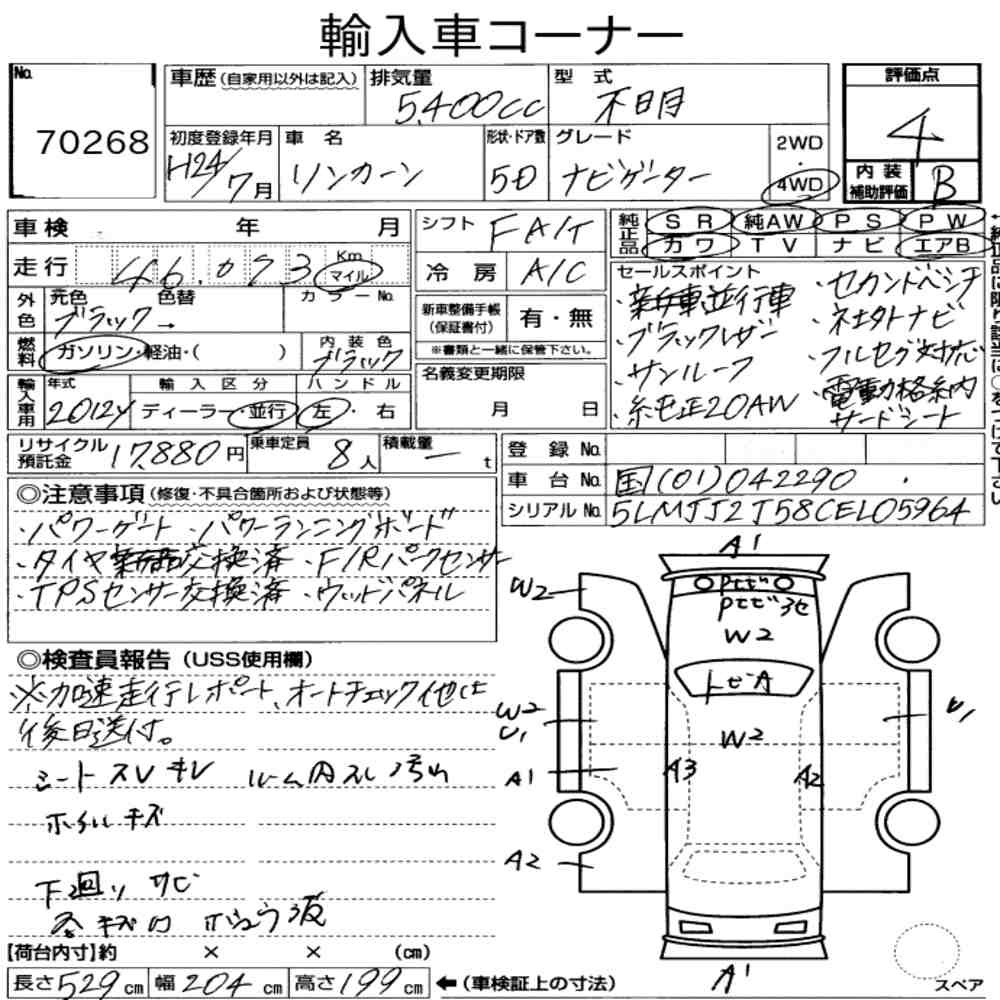 輸入車コーナー
No.
70268
車歴(自家用以外は記入)
排気量
5,400cc
型式
不明
評価点
4
内装補助評価
B
初度登録年月
H24/7月
車名
リンカーン
形状・ドア数
5D
グレード
ナビゲーター
2WD
・
4WD
車検 年 月
シフト
FA/T
純正品
SR 純AW PS PW
カワ TV ナビ エアB
走行
46,073
Km
マイル
冷房
A/C
セールスポイント
・新車並行車
・セカンドベンチ
・ブラックレザー
・社外ナビ
・サンルーフ
・フルセグ対応
・純正20AW
・電動格納
サードシート
外色
元色 色替
ブラック→
カラーNo.
新車整備手帳
(保証書付)
有・無
※書類と一緒に保管下さい。
燃料
ガソリン・軽油・( )
内装色
ブラック
名義変更期限
月 日
輸入車用
年式
2012y
輸入区分
ディーラー・並行
ハンドル
左・右
リサイクル預託金
17,880円
乗車定員
8人
積載量
ー t
登録No.
車台No.
国(01)042290
シリアルNo.
5LMJJ2J58CEL05964
◎注意事項(修復・不具合箇所および状態等)
・パワーゲート ・パワーランニングボード
・タイヤ新品交換済 ・F/Rパークセンサー
・TPSセンサー交換済 ・ウッドパネル
◎検査員報告(USS使用欄)
※加速走行レポート、オートチェック他は
後日送付。
シートスレキレ ルーム内スレ汚れ
ホイルキズ
下廻りサビ
各キズ凹
【荷台内寸】約 × × (cm)
長さ529cm 幅204cm 高さ199cm
←(車検証上の寸法)
A1
Pセビ
W2
W2
トビA
W2
U1
W2
U1
A1
A3
A2
A2
A1
スペア